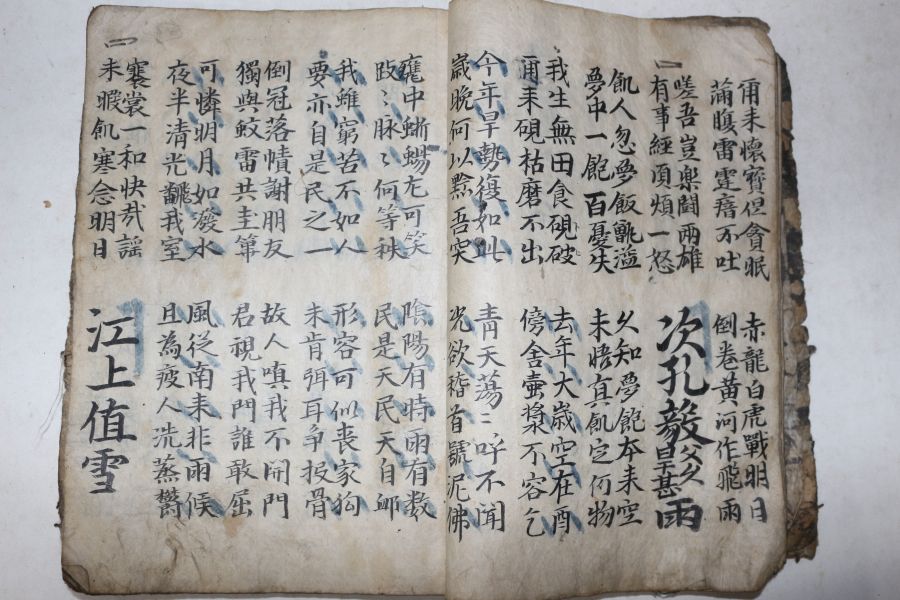 一
爾来懷寶但貪眠
滿腹雷霆瘖不吐
赤龍白虎戰明日
倒卷黃河作飛雨
嗟吾豈樂鬪兩雄
有事經湏煩一怒
次孔毅父久旱甚雨
飢人忽夢飯甑溢
夢中一飽百憂失
久知夢飽本来空
未晤真飢定何物
我生無田食硯破
爾来硯枯磨不出
去年大歲空在酉
傍舍壺漿不容乞
今年旱勢復如此
歲晚何以黔吾突
青天蕩〻呼不聞
况欲稽首號泥佛
甕中蜥蜴尤可笑
跂〻脉〻何等秩
陰陽有時雨有数
民是天民天自卹
我雖窮苦不如人
要亦自是民之一
形容可似喪家狗
未肯弭耳爭投骨
倒冠落幘謝朋友
獨與蚊雷共圭篳
故人嗔我不開門
君視我門誰敢屈
可憐明月如潑水
夜半清光飜我室
風從南来非雨候
且為疲人洗蒸鬱
一
褰裳一和快哉謡
未暇飢寒念明日
江上值雪